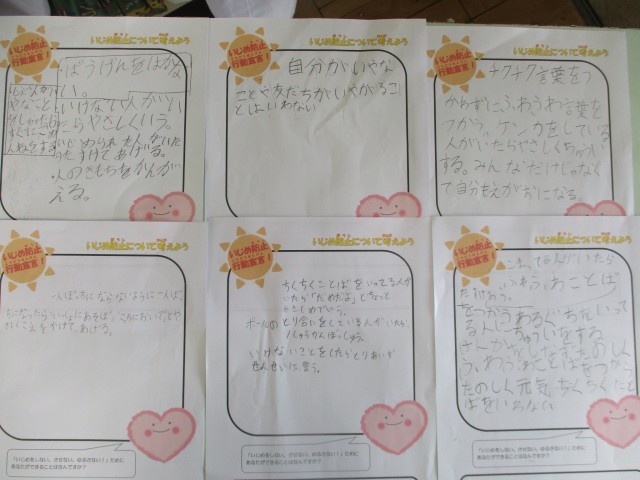 いじめ防止について考えよう
いじめ防止
行動宣言!
ぼうげんをはかな
い。
いけない人がい
たらやさしくいう。
いじめられた人がいた
らたすけてあげる。
人のきもちをかんが
える。
いじめ防止について考えよう
いじめ防止
行動宣言!
自分がいやな
ことや友だちがいやがるこ
とはいわない
いじめ防止について考えよう
いじめ防止
行動宣言!
チクチク言葉をつ
かわずにふわふわ言葉を
つかう。ケンカをしている
人がいたらやさしくちゅうい
する。みんなだけじゃなく
て自分もえがおになる。
いじめ防止について考えよう
いじめ防止
行動宣言!
一人ぼっちにならないように一人ぼっ
ちになったらいっしょにあそぼ、こっちにおいで。とや
さしくこえをかけてあげる。
「いじめをしない、させない、ゆるさない!」ために
あなたができることはなんですか?
いじめ防止について考えよう
いじめ防止
行動宣言!
ちくちくことばをいってる人が
いたら「だめだよ」とちょっと
やさしめでいう。
ボールのとり合いをしている人がいたら、
いけないことをしたらとりあいず
せんせいに言う。
「いじめをしない、させない、ゆるさない!」ために
あなたができることはなんですか?
いじめ防止について考えよう
いじめ防止
行動宣言!
こまってる人がいたら
たすけよう。
ふわふわことば
をつかう
る人にちゅういをする
たのしく元気ちくちくこと
ばをいわない
「いじめをしない、させない、ゆるさない!」ために
あなたができることはなんですか?